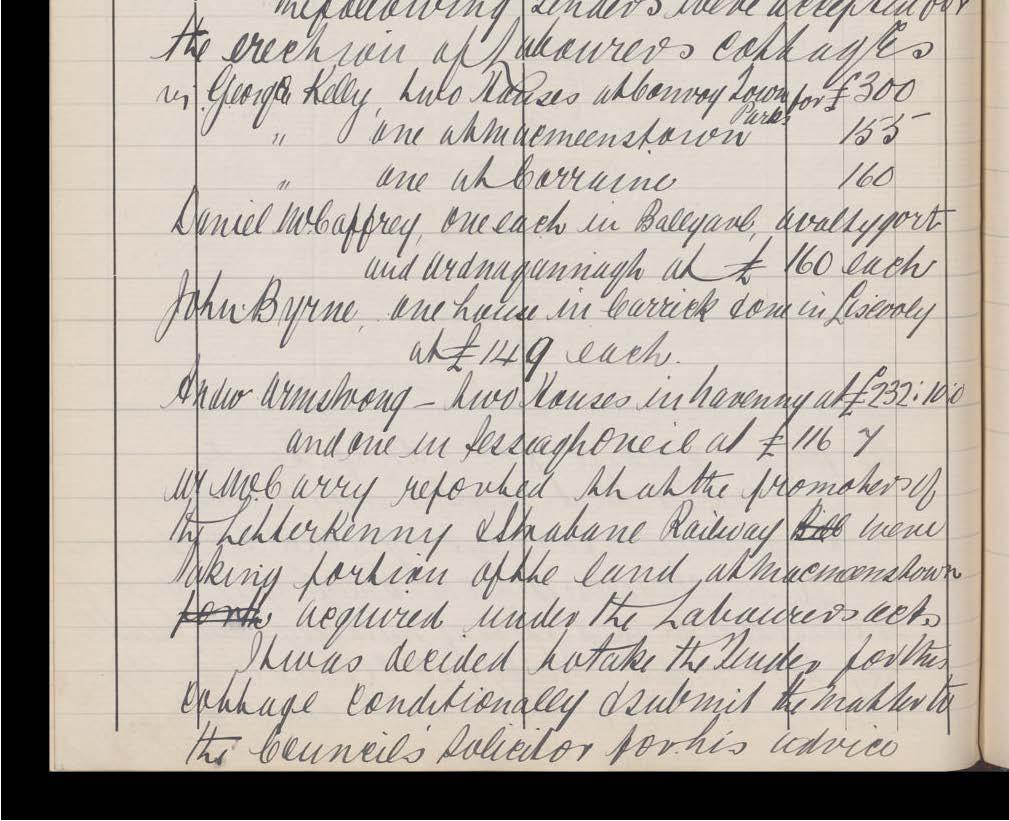 the following tenders were accepted for
the erection of Labourers cottages
viz George Kelly, two Houses at Convoy Town Parks for £300
" one at Macmeenstown 155
" one at Corraine 160
Daniel McCaffrey, one each in Ballygavl,
and Ardnagannagh at £ 160 each
John Byrne, one house in Carrick & one in Liscooly
at £149 each.
Andw Armstrong – two Houses in Cavenny at £232:10:0
and one in Sessiaghoneil at £ 116 7
Mr McCarry reported that the promoters of
the Letterkenny & Strabane Railway Bill were
taking portion of the land at Macmeenstown
acquired under the Labourers acts
It was decided to take the Tender for this
cottage conditionally & submit the matter to
the Council's Solicitor for his advice